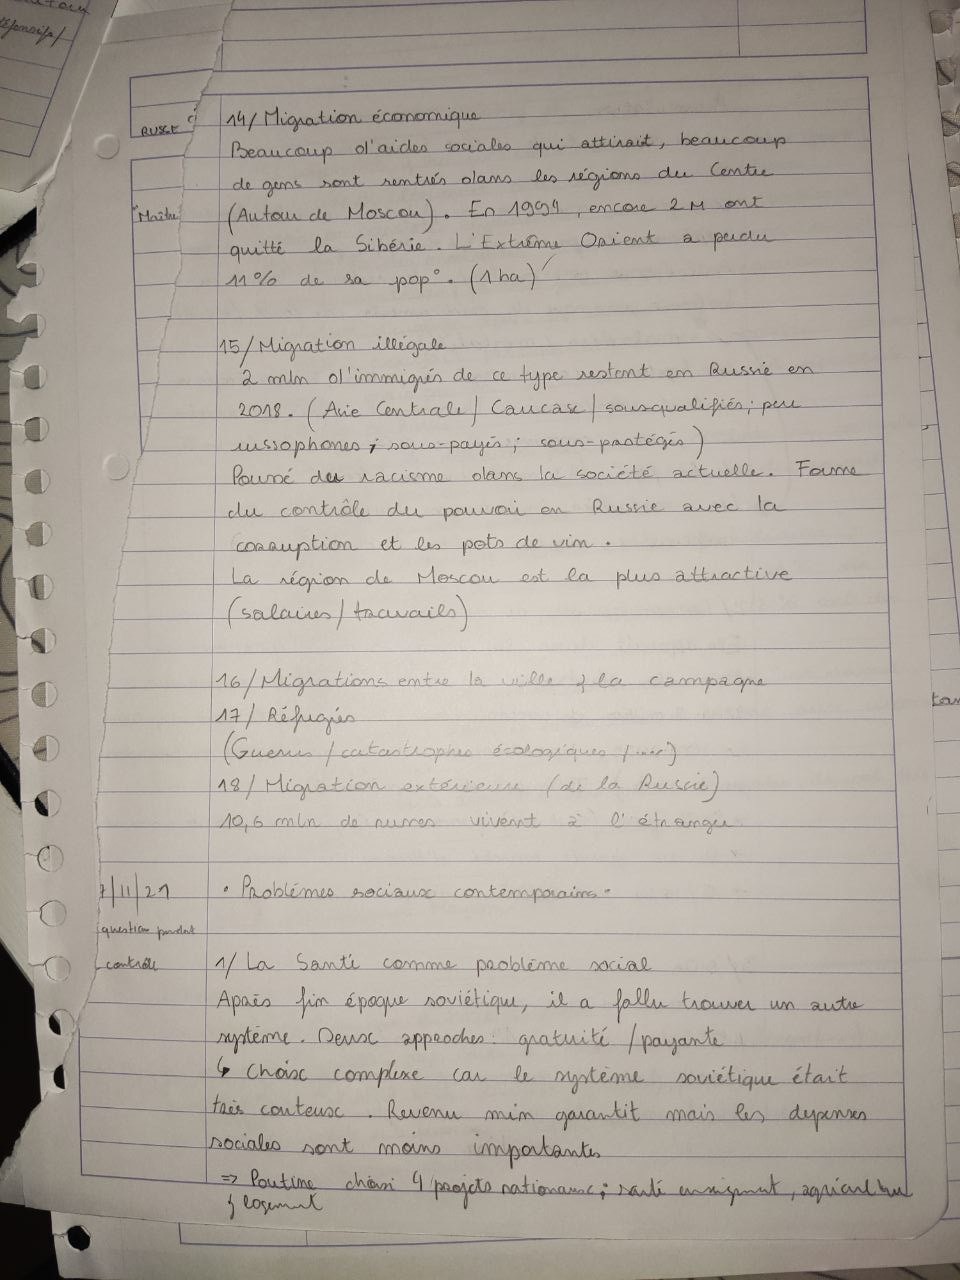 RUSSE
14/ Migration économique
Beaucoup d'aides sociales qui attirait, beaucoup
de gens sont rentrés dans les régions du Centre
"Maître
(Autour de Moscou). En 1994, encore 2 M ont
quitté la Sibérie. L'Extrême Orient a perdu
11% de sa pop°. (1 ha)
15/ Migration illégale
2 mln d'immigrés de ce type restent en Russie en
2018. (Asie Centrale/ Caucase/ sous-qualifiés; peu
russophones; sous-payés; sous-protégés)
du racisme dans la société actuelle. Forme
du contrôle du pouvoir en Russie avec la
corruption et les pots de vin.
La région de Moscou est la plus attractive
(salaires/ travails)
16/ Migrations entre la ville & la campagne
17/ Réfugiés
(Guerres / catastrophes écologiques /...)
18/ Migration extérieure (de la Russie)
10,6 mln de russes vivent à l'étranger
7/11/21
• Problèmes sociaux contemporains •
question pendant
contrôle
1/ La Santé comme problème social
Après fin époque soviétique, il a fallu trouver un autre
système. Deux approches: gratuité / payante
↳ Choix complexe car le système soviétique était
très couteux. Revenu min garantit mais les depenses
sociales sont moins importantes
=> Poutine choisi 4 projets nationaux; santé enseignement, agriculture
& logement